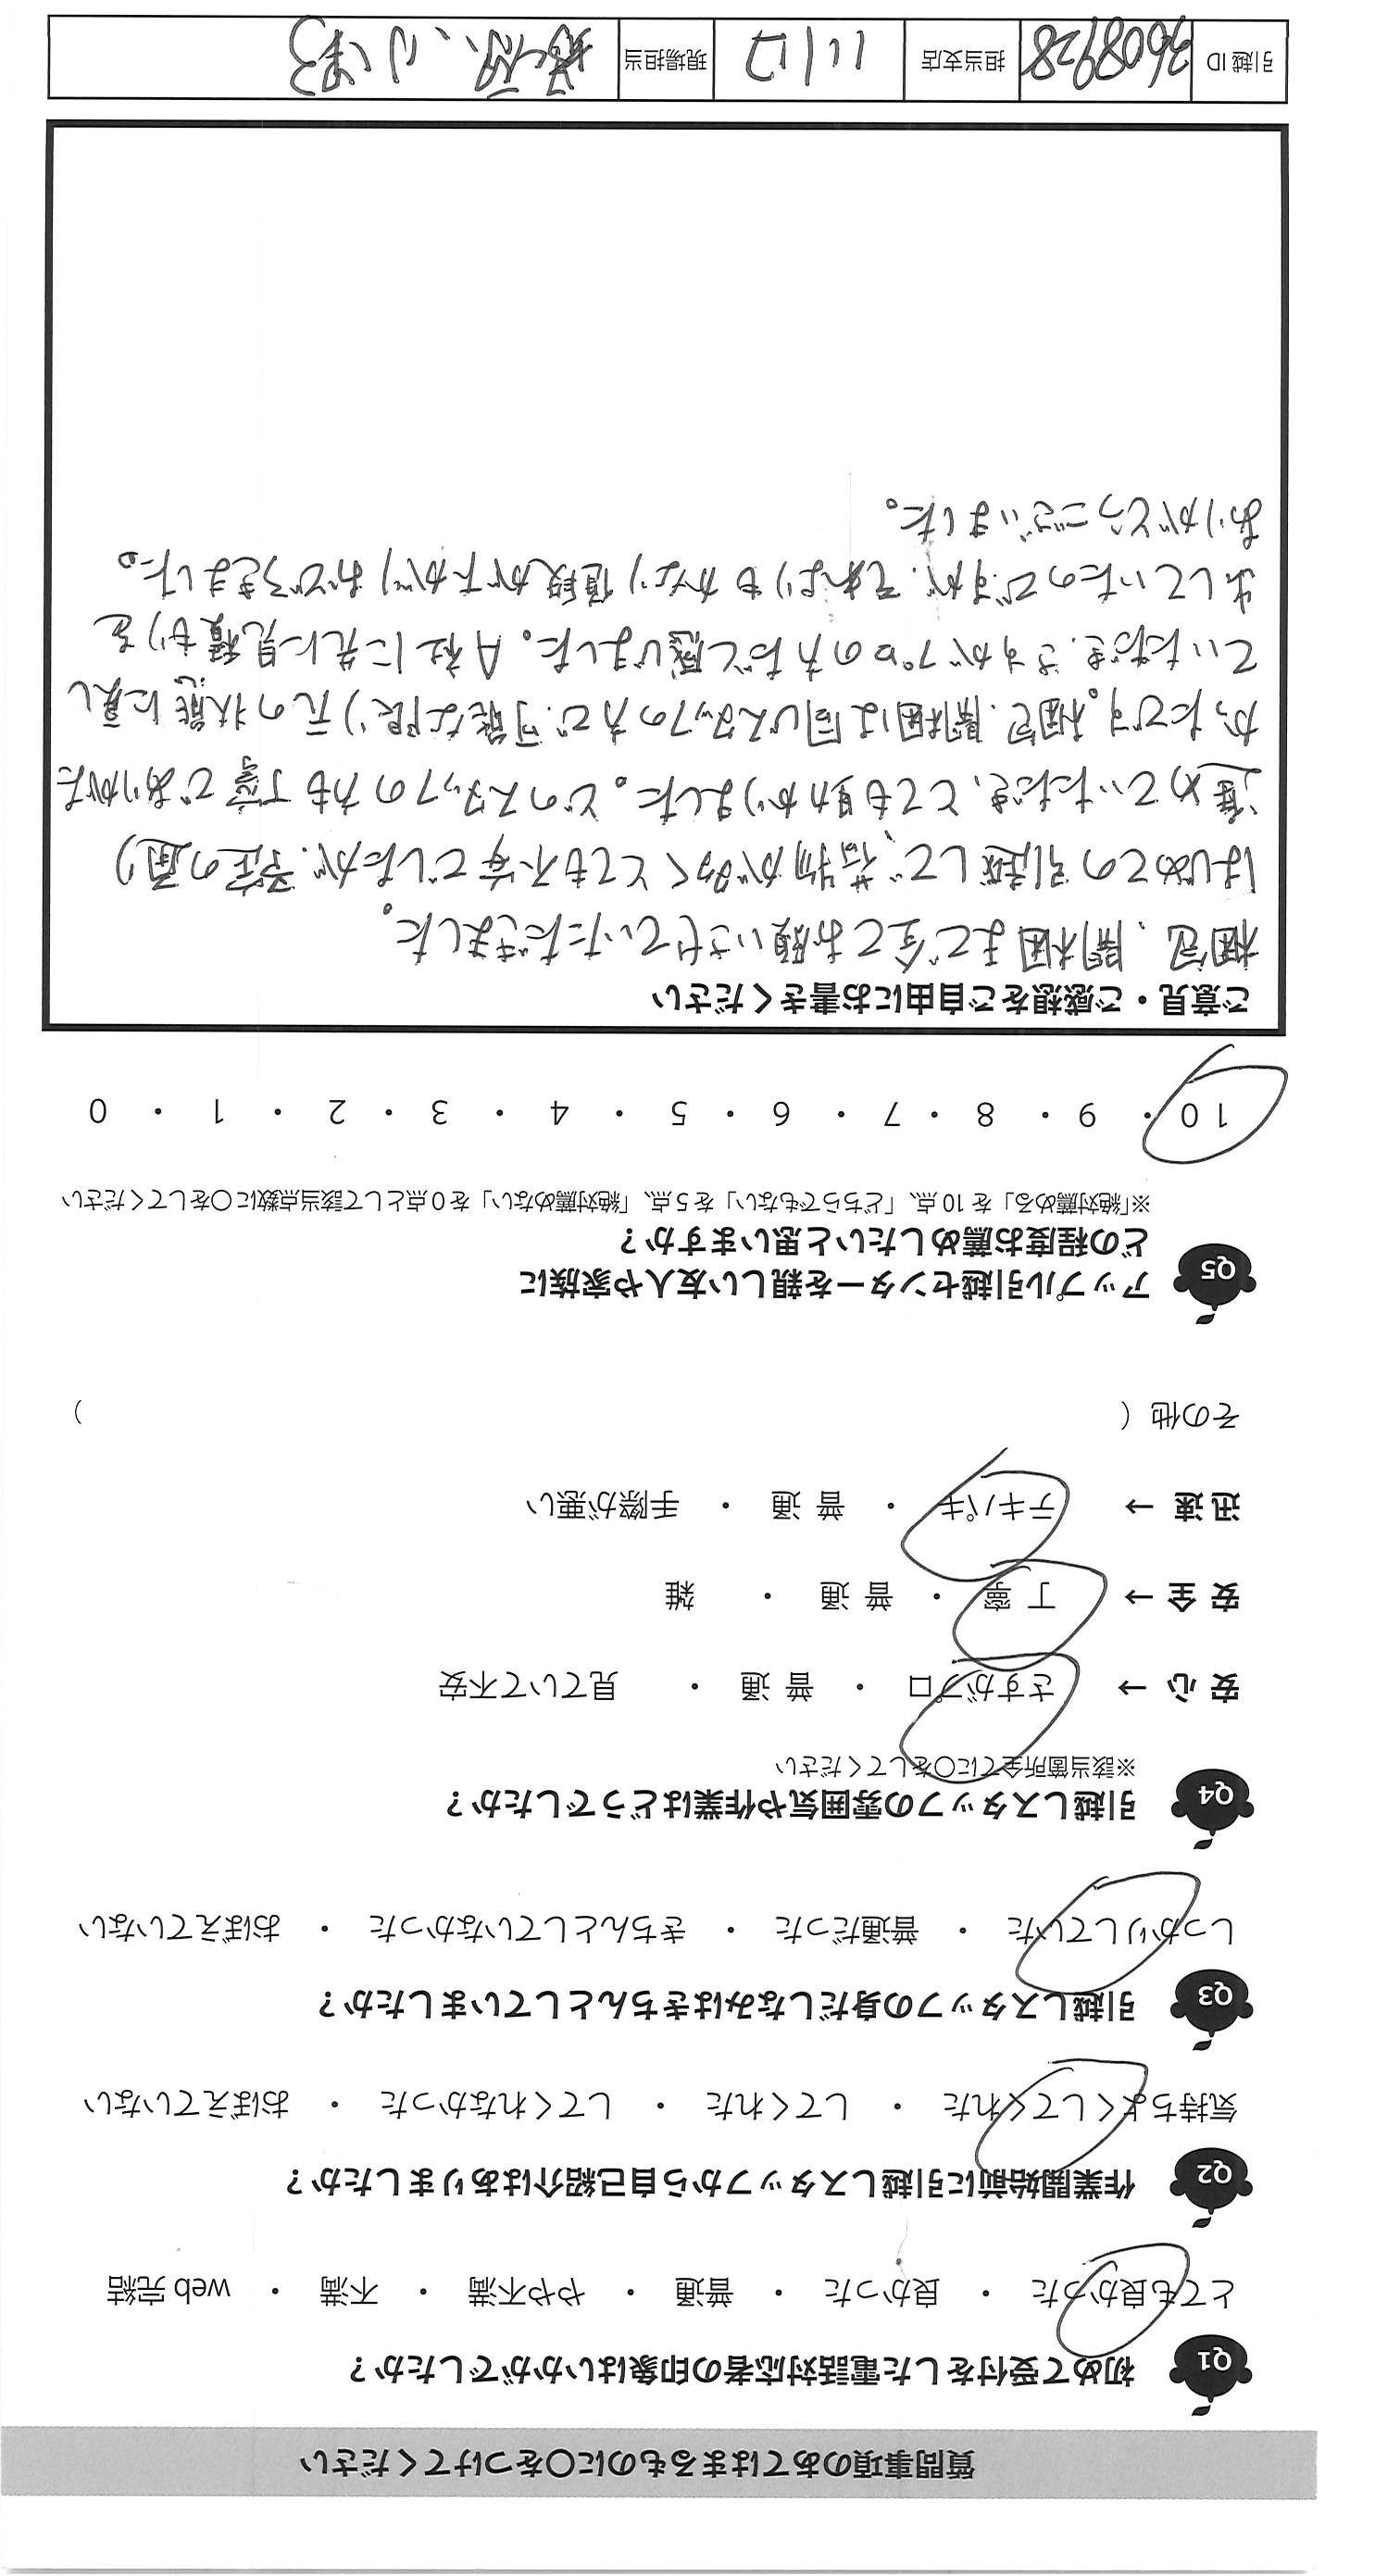 質問事項のあてはまるものに〇をつけてください
Q1 初めて受付をした電話対応者の印象はいかがでしたか？
とても良かった ・ 良かった ・ 普通 ・ やや不満 ・ 不満 ・ web 完結
Q2 作業開始前に引越しスタッフから自己紹介はありましたか？
気持ちよくしてくれた ・ してくれた ・ してくれなかった ・ おぼえていない
Q3 引越しスタッフの身だしなみはきちんとしていましたか？
しっかりしていた ・ 普通だった ・ きちんとしていなかった ・ おぼえていない
Q4 引越しスタッフの雰囲気や作業はどうでしたか？
※該当箇所全てに〇をしてください
安 心 → さすがプロ ・ 普 通 ・ 見ていて不安
安 全 → 丁 寧 ・ 普 通 ・ 雑
迅 速 → テキパキ ・ 普 通 ・ 手際が悪い
その他 （ ）
Q5 アップル引越センターを親しい友人や家族に
どの程度お薦めしたいと思いますか？
※「絶対薦める」を 10 点、「どちらでもない」を 5 点、「絶対薦めない」を 0 点として該当点数に〇をしてください
10 ・ 9 ・ 8 ・ 7 ・ 6 ・ 5 ・ 4 ・ 3 ・ 2 ・ 1 ・ 0
ご意見・ご感想をご自由にお書きください
梱包、開梱まで全てお願いさせていただきました。
はじめての引越しで、荷物が多くとても不安でしたが、予定の通り
進めていただき、とても助かりました。どのスタッフの方も丁寧でありがた
かったです。梱包、開梱は同じスタッフの方で、可能な限り元の状態に戻し
ていただき、さすがプロの方だと感じました。A社に先に見積もりを
出していたのですが、それよりもかなり値段が下がりおどろきました。
ありがとうございました。
引越 ID 3608928 担当支店 川口 現場担当